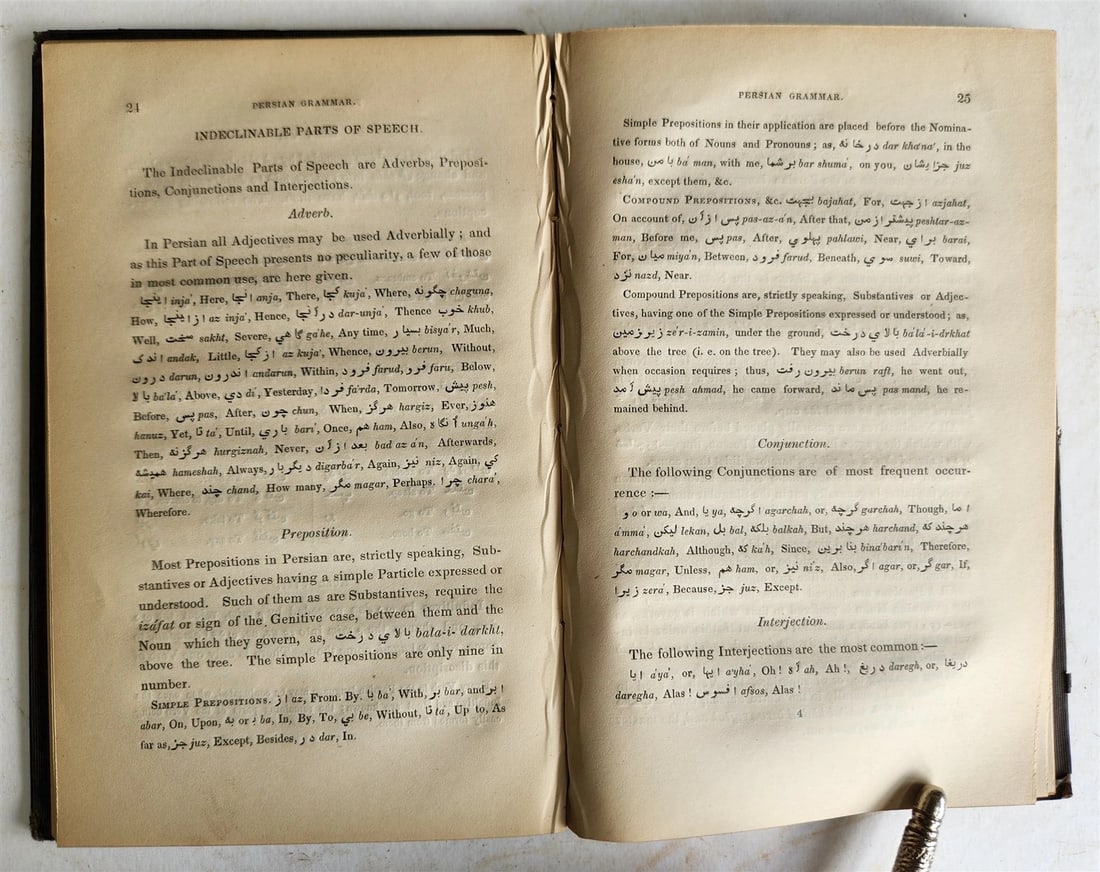 24
PERSIAN GRAMMAR.
INDECLINABLE PARTS OF SPEECH.
The Indeclinable Parts of Speech are Adverbs, Preposi-
tions, Conjunctions and Interjections.
Adverb.
In Persian all Adjectives may be used Adverbially; and
as this Part of Speech presents no peculiarity, a few of those
in most common use, are here given.
اینجا inja', Here, انجا anja, There, کجا kuja', Where, چگونه chaguna,
How, از اینجا az inja', Hence, در آنجا dar-unja', Thence خوب khub,
Well, سخت sakht, Severe, گاهي ga'he, Any time, بسیار bisya'r, Much,
اندک andak, Little, از کجا az kuja', Whence, بیرون berun, Without,
درون darun, اندرون andarun, Within, فرود farud, فرو faru, Below,
بالا ba'la', Above, دي di', Yesterday, فردا fa'rda, Tomorrow, پیش pesh,
Before, پس pas, After, چون chun, When, هرگز hargiz, Ever, هنوز
hanuz, Yet, تا ta', Until, باري bari', Once, هم ham, Also, آنگاه unga'h,
Then, هرگزنه hurgiznah, Never, بعد ازآن bad az a'n, Afterwards,
همیشه hameshah, Always, دیگربار digarba'r, Again, نیز niz, Again, کي
kai, Where, چند chand, How many, مگر magar, Perhaps. چرا chara',
Wherefore.
Preposition.
Most Prepositions in Persian are, strictly speaking, Sub-
stantives or Adjectives having a simple Particle expressed or
understood. Such of them as are Substantives, require the
izáfat or sign of the Genitive case, between them and the
Noun which they govern, as, بالاي درخت bala-i- darkht,
above the tree. The simple Prepositions are only nine in
number.
SIMPLE PREPOSITIONS. از az, From. By. با ba', With, بر bar, and ابر
abar, On, Upon, به or ب ba, In, By, To, بي be, Without, تا ta', Up to, As
far as, جز juz, Except, Besides, در dar, In.
PERSIAN GRAMMAR.
25
Simple Prepositions in their application are placed before the Nomina-
tive forms both of Nouns and Pronouns; as, در خانه dar kha'na', in the
house, با من ba' man, with me, بر شما bar shuma', on you, جز ایشان juz
esha'n, except them, &c.
COMPOUND PREPOSITIONS, &c. بجهت bajahat, For, از جهت azjahat,
On account of, پس ازآن pas-az-a'n, After that, پیشتر از من peshtar-az-
man, Before me, پس pas, After, پهلوي pahlawi, Near, براي barai,
For, میان miya'n, Between, فرود farud, Beneath, سوي suwi, Toward,
نزد nazd, Near.
Compound Prepositions are, strictly speaking, Substantives or Adjec-
tives, having one of the Simple Prepositions expressed or understood; as,
زیرزمین ze'r-i-zamin, under the ground, بالاي درخت ba'la'-i-drkhat
above the tree (i. e. on the tree). They may also be used Adverbially
when occasion requires; thus, بیرون رفت berun raft, he went out,
پیش آمد pesh ahmad, he came forward, پس ماند pas mand, he re-
mained behind.
Conjunction.
The following Conjunctions are of most frequent occur-
rence :—
و o or wa, And, یا ya, اگرچه agarchah, or, گرچه garchah, Though, اما
a'mma', لیکن lekan, بل bal, بلکه balkah, But, هرچند harchand, هرچند که
harchandkah, Although, که ka'h, Since, بنا برین bina'bari'n, Therefore,
مگر magar, Unless, هم ham, or, نیز ni'z, Also, اگر agar, or, گر gar, If,
زیرا zera', Because, جز juz, Except.
Interjection.
The following Interjections are the most common :—
ایا a'ya', or, ایها a'yha', Oh! آه ah, Ah!, دریغ daregh, or, دریغا
daregha, Alas! افسوس afsos, Alas!
4